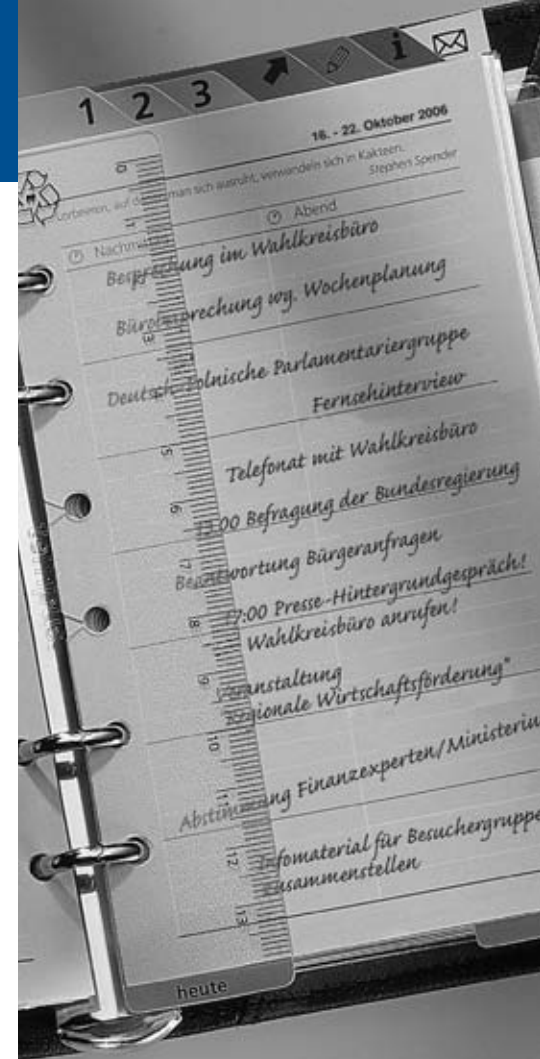 1 2 3 i
16. - 22. Oktober 2006
Lorbeeren, auf denen man sich ausruht, verwandeln sich in Kakteen.
Stephen Spender
Nachmittag Abend
Besprechung im Wahlkreisbüro
Bürobesprechung wg. Wochenplanung
Deutsch-Polnische Parlamentariergruppe
Fernsehinterview
Telefonat mit Wahlkreisbüro
13.00 Befragung der Bundesregierung
Beantwortung Bürgeranfragen
17:00 Presse-Hintergrundgespräch!
Wahlkreisbüro anrufen!
Veranstaltung
"Regionale Wirtschaftsförderung"
Abstimmung Finanzexperten/Ministeriu
Infomaterial für Besuchergruppe
zusammenstellen
0
1
3
5
6
7
8
9
10
11
12
13
heute